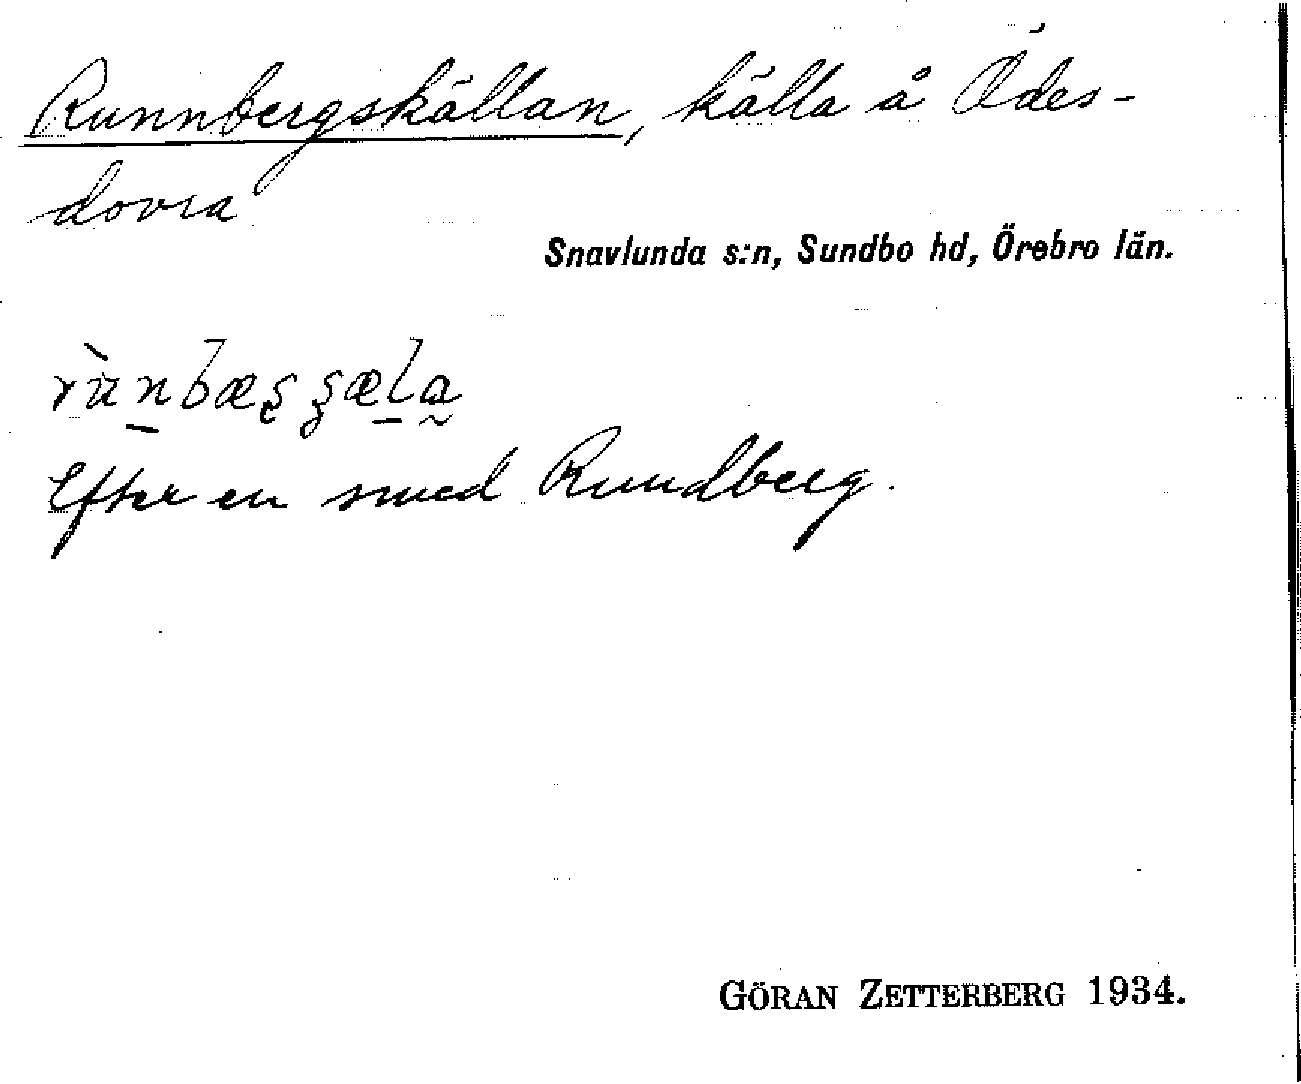 Runnbergskällan, källa å Ödes-
dovra
Snavlunda s:n, Sundbo hd, Örebro län.
Efter en smed Rundberg.
GÖRAN ZETTERBERG 1934.